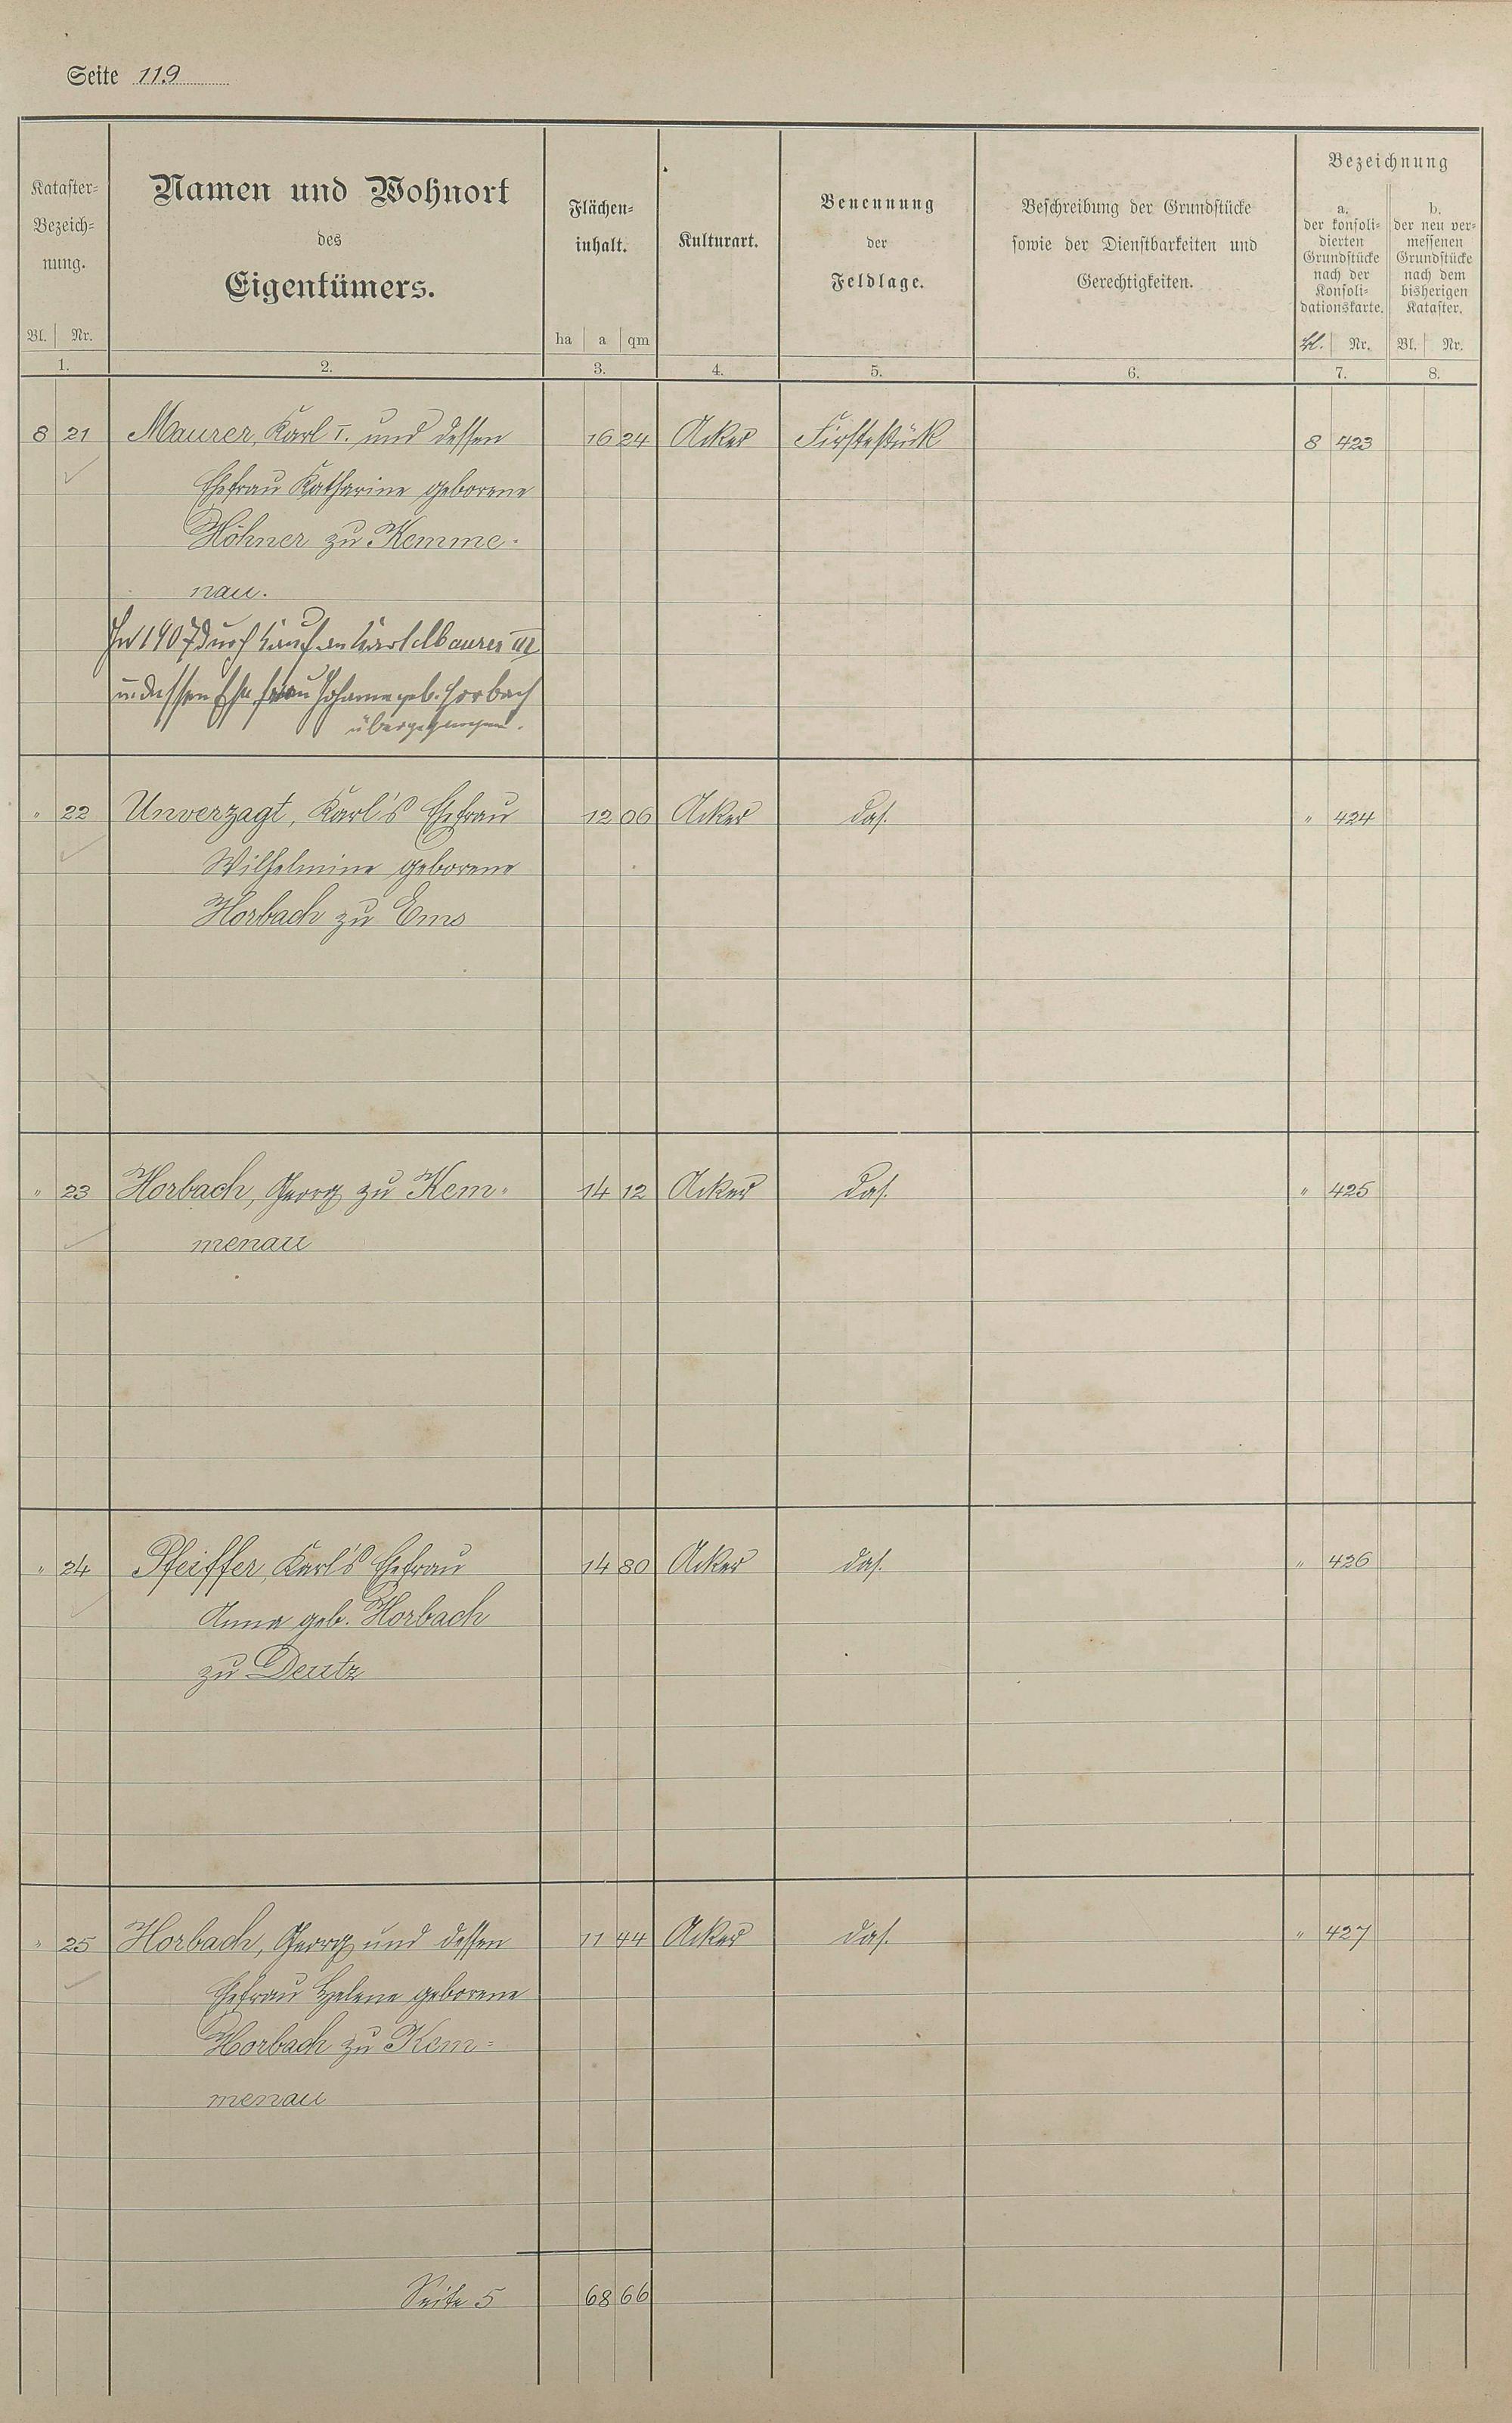 Seite 119
Kataster=
Bezeich=
nung.
Bl. Nr.
1.
Namen und Wohnort
des
Eigentümers.
2.
Flächen=
inhalt.
ha a qm
3.
Kulturart.
4.
Benennung
der
Feldlage.
5.
Beschreibung der Grundstücke
sowie der Dienstbarkeiten und
Gerechtigkeiten.
6.
Bezeichnung
a.
der konsoli=
dierten
Grundstücke
nach der
Konsoli=
dationskarte.
Bl. Nr.
7.
b.
der neu ver=
messenen
Grundstücke
nach dem
bisherigen
Kataster.
Bl. Nr.
8.
8 21 Maurer, Karl I. und dessen 16 24 Acker Firstestück 8 423
Ehefrau Katharine geborene
Höhner zu Kemme-
nau.
In 1907 durch Kauf an Karl Maurer III
u. dessen Ehefrau Johanna geb. Horbach
übergegangen.
" 22 Unverzagt, Karl's Ehefrau 12 06 Acker das. " 424
Wilhelmine geborene
Horbach zu Ems
" 23 Horbach, Georg zu Kem- 14 12 Acker das. " 425
menau
" 24 Pfeiffer, Karl's Ehefrau 14 80 Acker das. " 426
Anna geb. Horbach
zu Deutz
" 25 Horbach, Georg und dessen 11 44 Acker das. " 427
Ehefrau Helene geborene
Horbach zu Kem=
menau
Seite 5 68 66